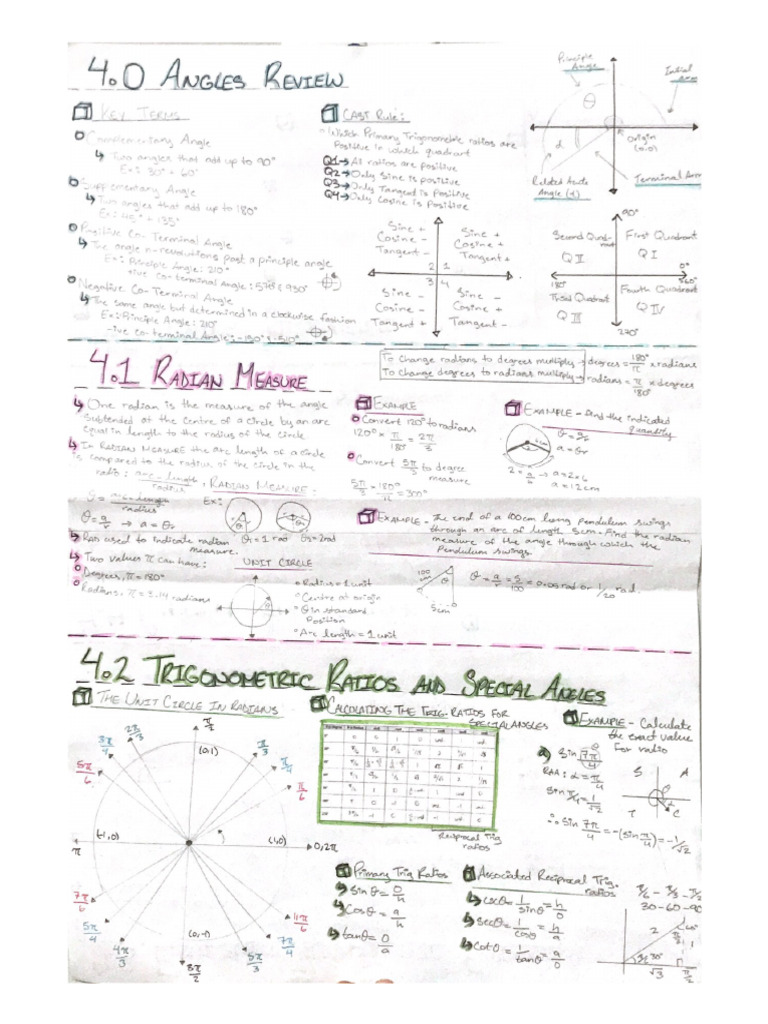 4.0 ANGLES REVIEW
KEY TERMS
Complementary Angle
↳ Two angles that add up to 90°
Ex: 30° + 60°
Supplementary Angle
↳ Two angles that add up to 180°
Ex: 45° + 135°
Positive Co-Terminal Angle
↳ The angle n-revolutions past a principle angle
Ex: Principle Angle: 210°
+ive co-terminal Angle: 570° & 930°
Negative Co-Terminal Angle
↳ The same angle but determined in a clockwise fashion
Ex: Principle Angle: 210°
-ive co-terminal Angle: -150° & -510°
CAST Rule:
Which Primary Trigonometric ratios are
Positive in which quadrant
Q1→ All ratios are positive
Q2→ Only Sine is positive
Q3→ Only Tangent is Positive
Q4→ Only Cosine is Positive
Sine +
Cosine -
Tangent -
Sine +
Cosine +
Tangent +
2 1
3 4
Sine -
Cosine -
Tangent +
Sine -
Cosine +
Tangent -
Principle
Angle
Initial
Arm
θ
α
Origin
(0,0)
Related Acute
Angle (α)
Terminal Arm
90°
Second Quadrant
Q II
First Quadrant
Q I
180°
0°
360°
Third Quadrant
Q III
Fourth Quadrant
Q IV
270°
4.1 RADIAN MEASURE
To change radians to degrees multiply → degrees = 180°/π × radians
To change degrees to radians multiply → radians = π/180° × degrees
↳ One radian is the measure of the angle
subtended at the centre of a circle by an arc
equal in length to the radius of the circle
↳ In RADIAN MEASURE the arc length of a circle
is compared to the radius of the circle in the
ratio: arc-length/radius, RADIAN MEASURE:
θ = arc-length/radius
θ = a/r → a = θr
Ex:
θ = 1 rad θ = 2 rad
↳ Rad used to indicate radian
measure.
↳ Two values π can have:
Degrees, π = 180°
Radians, π = 3.14 radians
UNIT CIRCLE
Radius = 1 unit
Centre at origin
θ in standard
Position
Arc length = 1 unit
EXAMPLE
Convert 120° to radians
120° × π/180° = 2π/3
Convert 5π/3 to degree
measure
5π/3 × 180°/π = 300°
EXAMPLE - Find the indicated
quantity
6cm
θ = a/r
a = θr
2 = a/6 → a = 2×6
a = 12cm
EXAMPLE - The end of a 100cm long pendulum swings
through an arc of length 5cm. Find the radian
measure of the angle through which the
Pendulum swings.
100
cm
θ
5cm
θ = a/r = 5/100 = 0.05 rad or 1/20 rad.
4.2 TRIGONOMETRIC RATIOS AND SPECIAL ANGLES
THE UNIT CIRCLE IN RADIANS
π/2
2π/3
3π/4
5π/6
π/3
π/4
π/6
(0,1)
(-1,0)
(1,0)
(0,-1)
π
0,2π
7π/6
5π/4
4π/3
3π/2
5π/3
7π/4
11π/6
CALCULATING THE TRIG-RATIOS FOR
SPECIAL ANGLES
Reciprocal Trig
ratios
EXAMPLE - Calculate
the exact value
For ratio
a) Sin 7π/4
RAA: α = π/4
Sin π/4 = 1/√2
∴ Sin 7π/4 = -(sin π/4) = -1/√2
S A
T C
Primary Trig Ratios
↳ Sinθ = O/h
↳ Cosθ = a/h
↳ tanθ = O/a
Associated Reciprocal Trig.
ratios
↳ cscθ = 1/sinθ = h/O
↳ secθ = 1/cosθ = h/a
↳ cotθ = 1/tanθ = a/O
π/6 - π/3 - π/2
30-60-90
2
60°
1
30°
√3
π/2